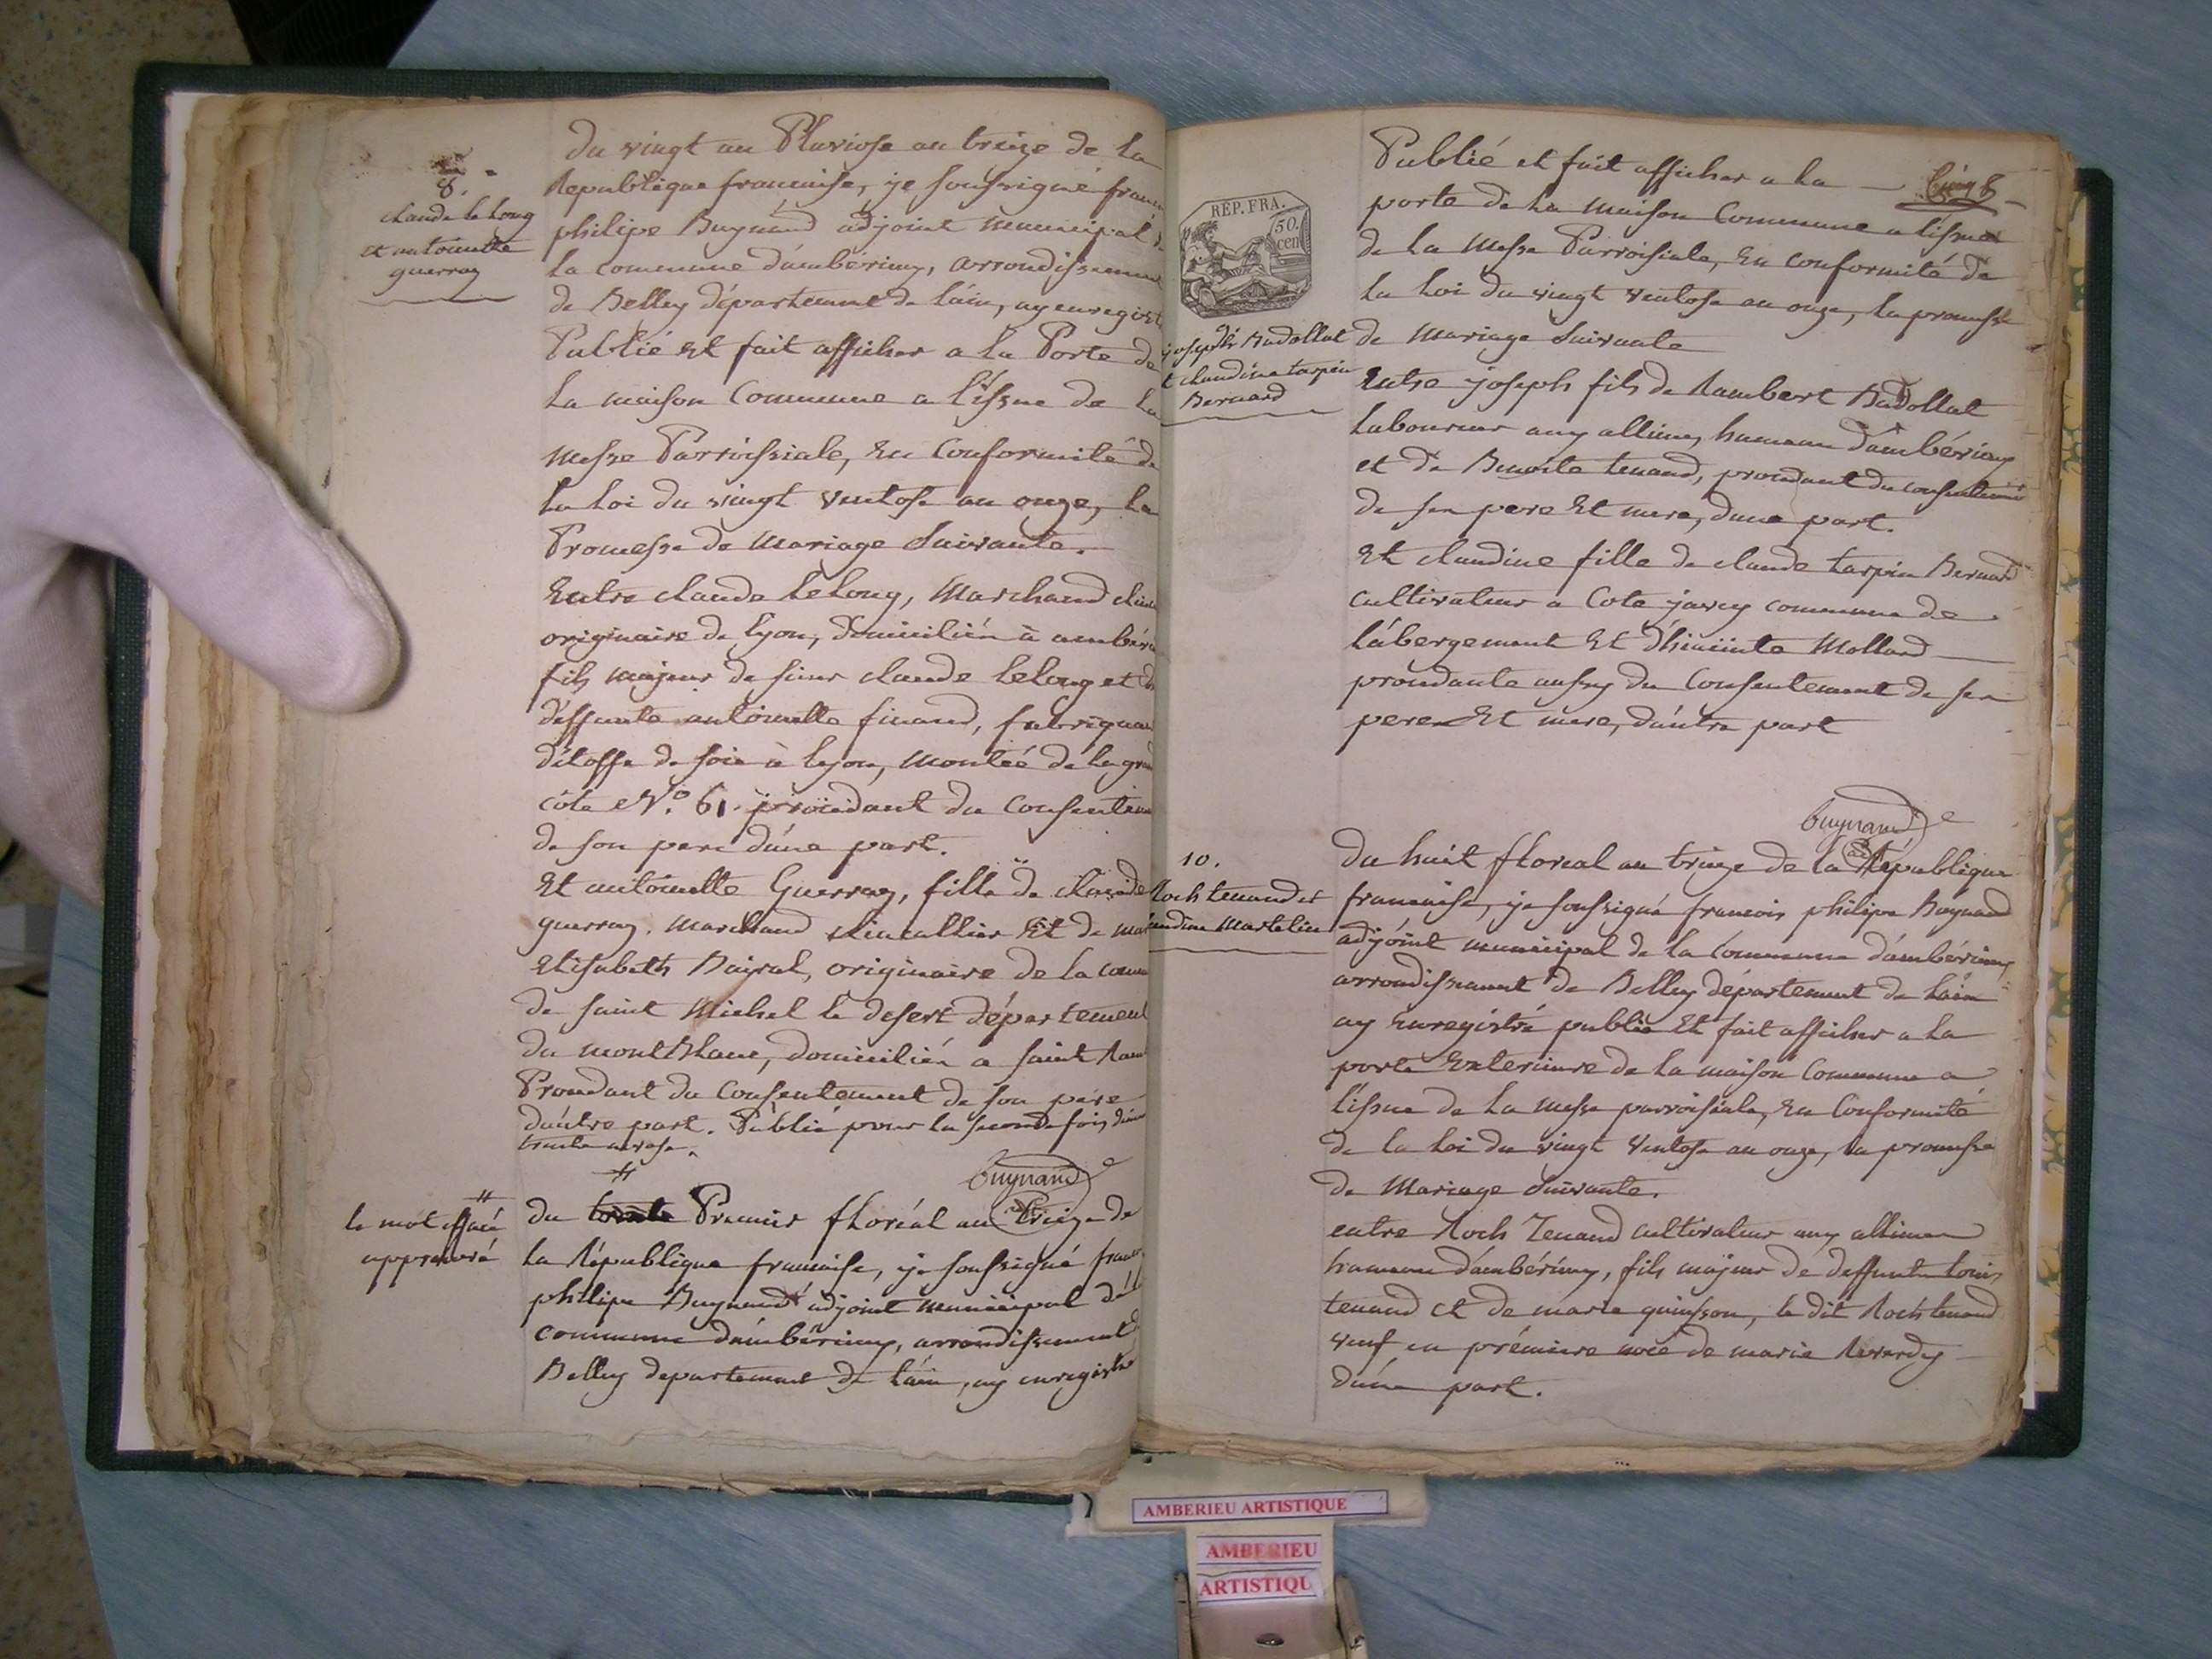 8.
claude le Long
et antoinette
guerraz
du vingt un Pluviose an treize de la
Republique francaise, je soussigné
philipe Buynand adjoint municipal
la commune d'ambérieux, arrondissement
de Belley département de l'ain, ay
Publié et fait afficher a la Porte de
la maison Commune a l'issue de la
messe Parroissiale, en Conformité de
la loi du vingt ventose an onze, la
Promesse de Mariage Suivante.
Entre claude le Long, Marchand
originaire de Lyon, domicilié à
fils majeur de sieur claude le long et
deffunte antoinette finand,
d'étoffe de soie à Lyon, montée de la
côte N.° 61. procédant du
de son pere d'une part.
Et antoinette Guerraz, fille de claude
guerraz, marchand clincallier Et de
Elisabeth Bairal, originaire de la
de saint Michel le desert département
du montBlanc, domicilié a saint
Procedant du Consentement de son père
d'autre part. Publié pour la seconde fois
#
Buynand
#
le mot effacé
approuvé
du Premier floréal an Treize de
la République francaise, je soussigné
philipe Buynand adjoint municipal de
commune d'ambérieux, arrondissement
Belley departement de l'ain, ay enregistré
REP. FRA.
50.
cen
joseph Badollat
et claudine tarpin
Bernard
Publié et fait afficher a la
porte de la maison Commune a l'issue
de la Messe Parroisiale, En conformité de
la Loi du vingt ventose an onze, la promesse
de Mariage Suivante
Entre joseph fils de Rambert Badollat
laboureur aux allimes, hameau d'ambérieux
et de Benoite tenand, procedant du consentement
de ses pere Et mere, d'une part.
Et claudine fille de claude tarpin Bernard
cultivateur a Cote javey commune de
l'abergement Et d'hiacinte Mollard
procédante aussy du Consentement de ses
peres Et mere, d'autre part
Buynand
10.
Roch tenand et
Martelin
du huit floreal an treize de la République
francaise, je soussigné francois philipe Buynand
adjoint municipal de la Commune d'ambérieux,
arrondissement de Belley département de l'ain
ay Enregistré publié Et fait afficher a la
porte Exterieure de la maison Commune a
l'issue de la messe parroisiale, En Conformité
de la Loi du vingt ventose an onze, la promesse
de Mariage Suivante.
entre Roch Tenand cultivateur aux allimes
hameau d'ambérieux, fils majeur de deffunt louis
tenand et de marie quinson, le dit Roch tenand
veuf en prémiere noce de marie
d'une part.
AMBERIEU ARTISTIQUE
AMBERIEU
ARTISTIQU